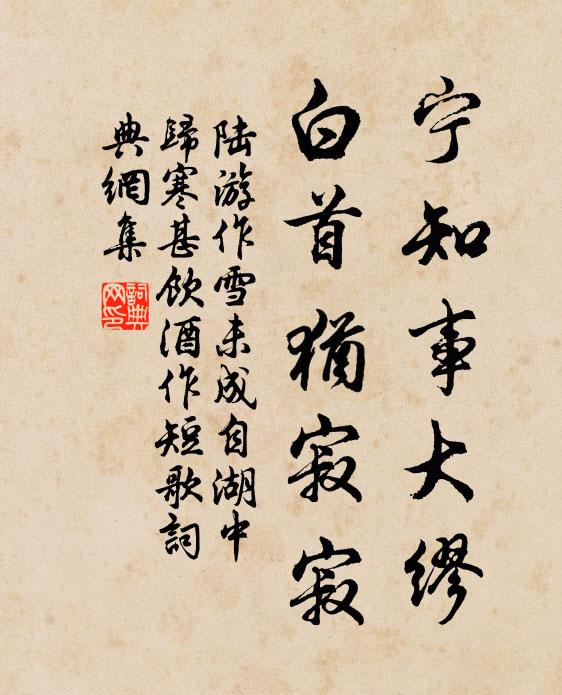 宁知事大缪
白首犹寂寂
陆游作雪未成自湖中
歸寒甚飲酒作短歌詞
典網集
詞典
网印